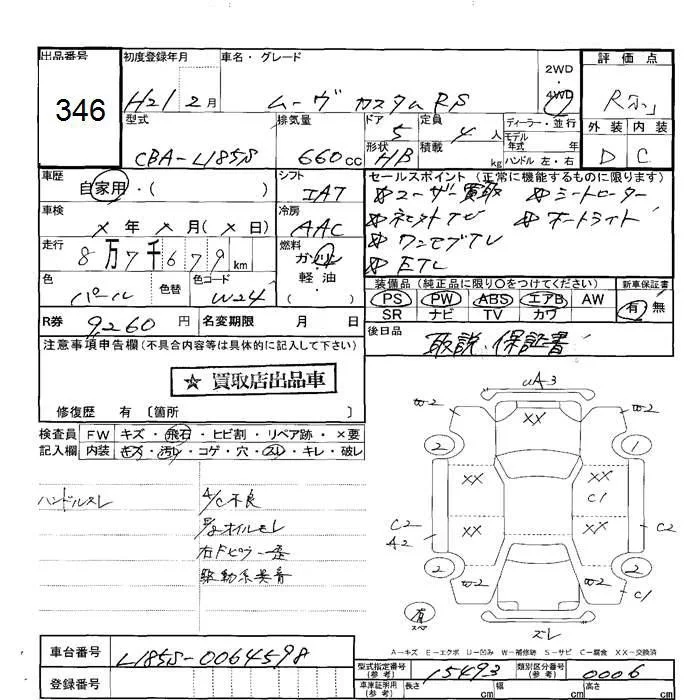 出品番号 初度登録年月 車名・グレード 2WD・4WD 評価点
346 H21 2月 ムーヴ カスタムRS R
型式 排気量 ドア 5 定員 4人 ディーラー・並行 外装 内装
CBA-L185S 660cc 形状 HB 積載 kg モデル年式 年 ハンドル 左・右 D C
車歴 自家用・( ) シフト IAT セールスポイント (正常に機能するものに限ります)
車検 × 年 × 月 (× 日) 冷房 AAC
☆ユーザー買取 ☆シートヒーター
☆オートライト
☆ワンセグTV
☆ETC
走行 8万7千679km 燃料 ガソリン・軽油・( )
色 パール 色替 色コード W24
装備品 (純正品に限り〇をつけてください) 新車保証書
PS PW ABS エアB AW 有 無
SR ナビ TV カワ
R券 9,260円 名変期限 月 日
後日品 取説、保証書
注意事項申告欄 (不具合内容等は具体的に記入して下さい)
☆ 買取店出品車
修復歴 有 〔箇所 〕
検査員 FW キズ・飛石・ヒビ割・リペア跡・×要
記入欄 内装 キズ・汚レ・コゲ・穴・スレ・キレ・破レ
ハンドルスレ A/C不良
オイルモレ
右Fピラー歪
駆動系異音
uA-3
W-2 XX W-2
2 1
XX XX
C1
C2 XX XX C2
A2
2 2
W-2 W-2
C1
有
スペア
ズレ
A-キズ E-エクボ U-凹み W-補修跡 S-サビ C-腐食 XX-交換済
車台番号 L185S-0064598
登録番号
型式指定番号 (参考) 15493 類別区分番号 (参考) 0006
車庫証明用 (参考) 長さ cm 幅 cm 高さ cm